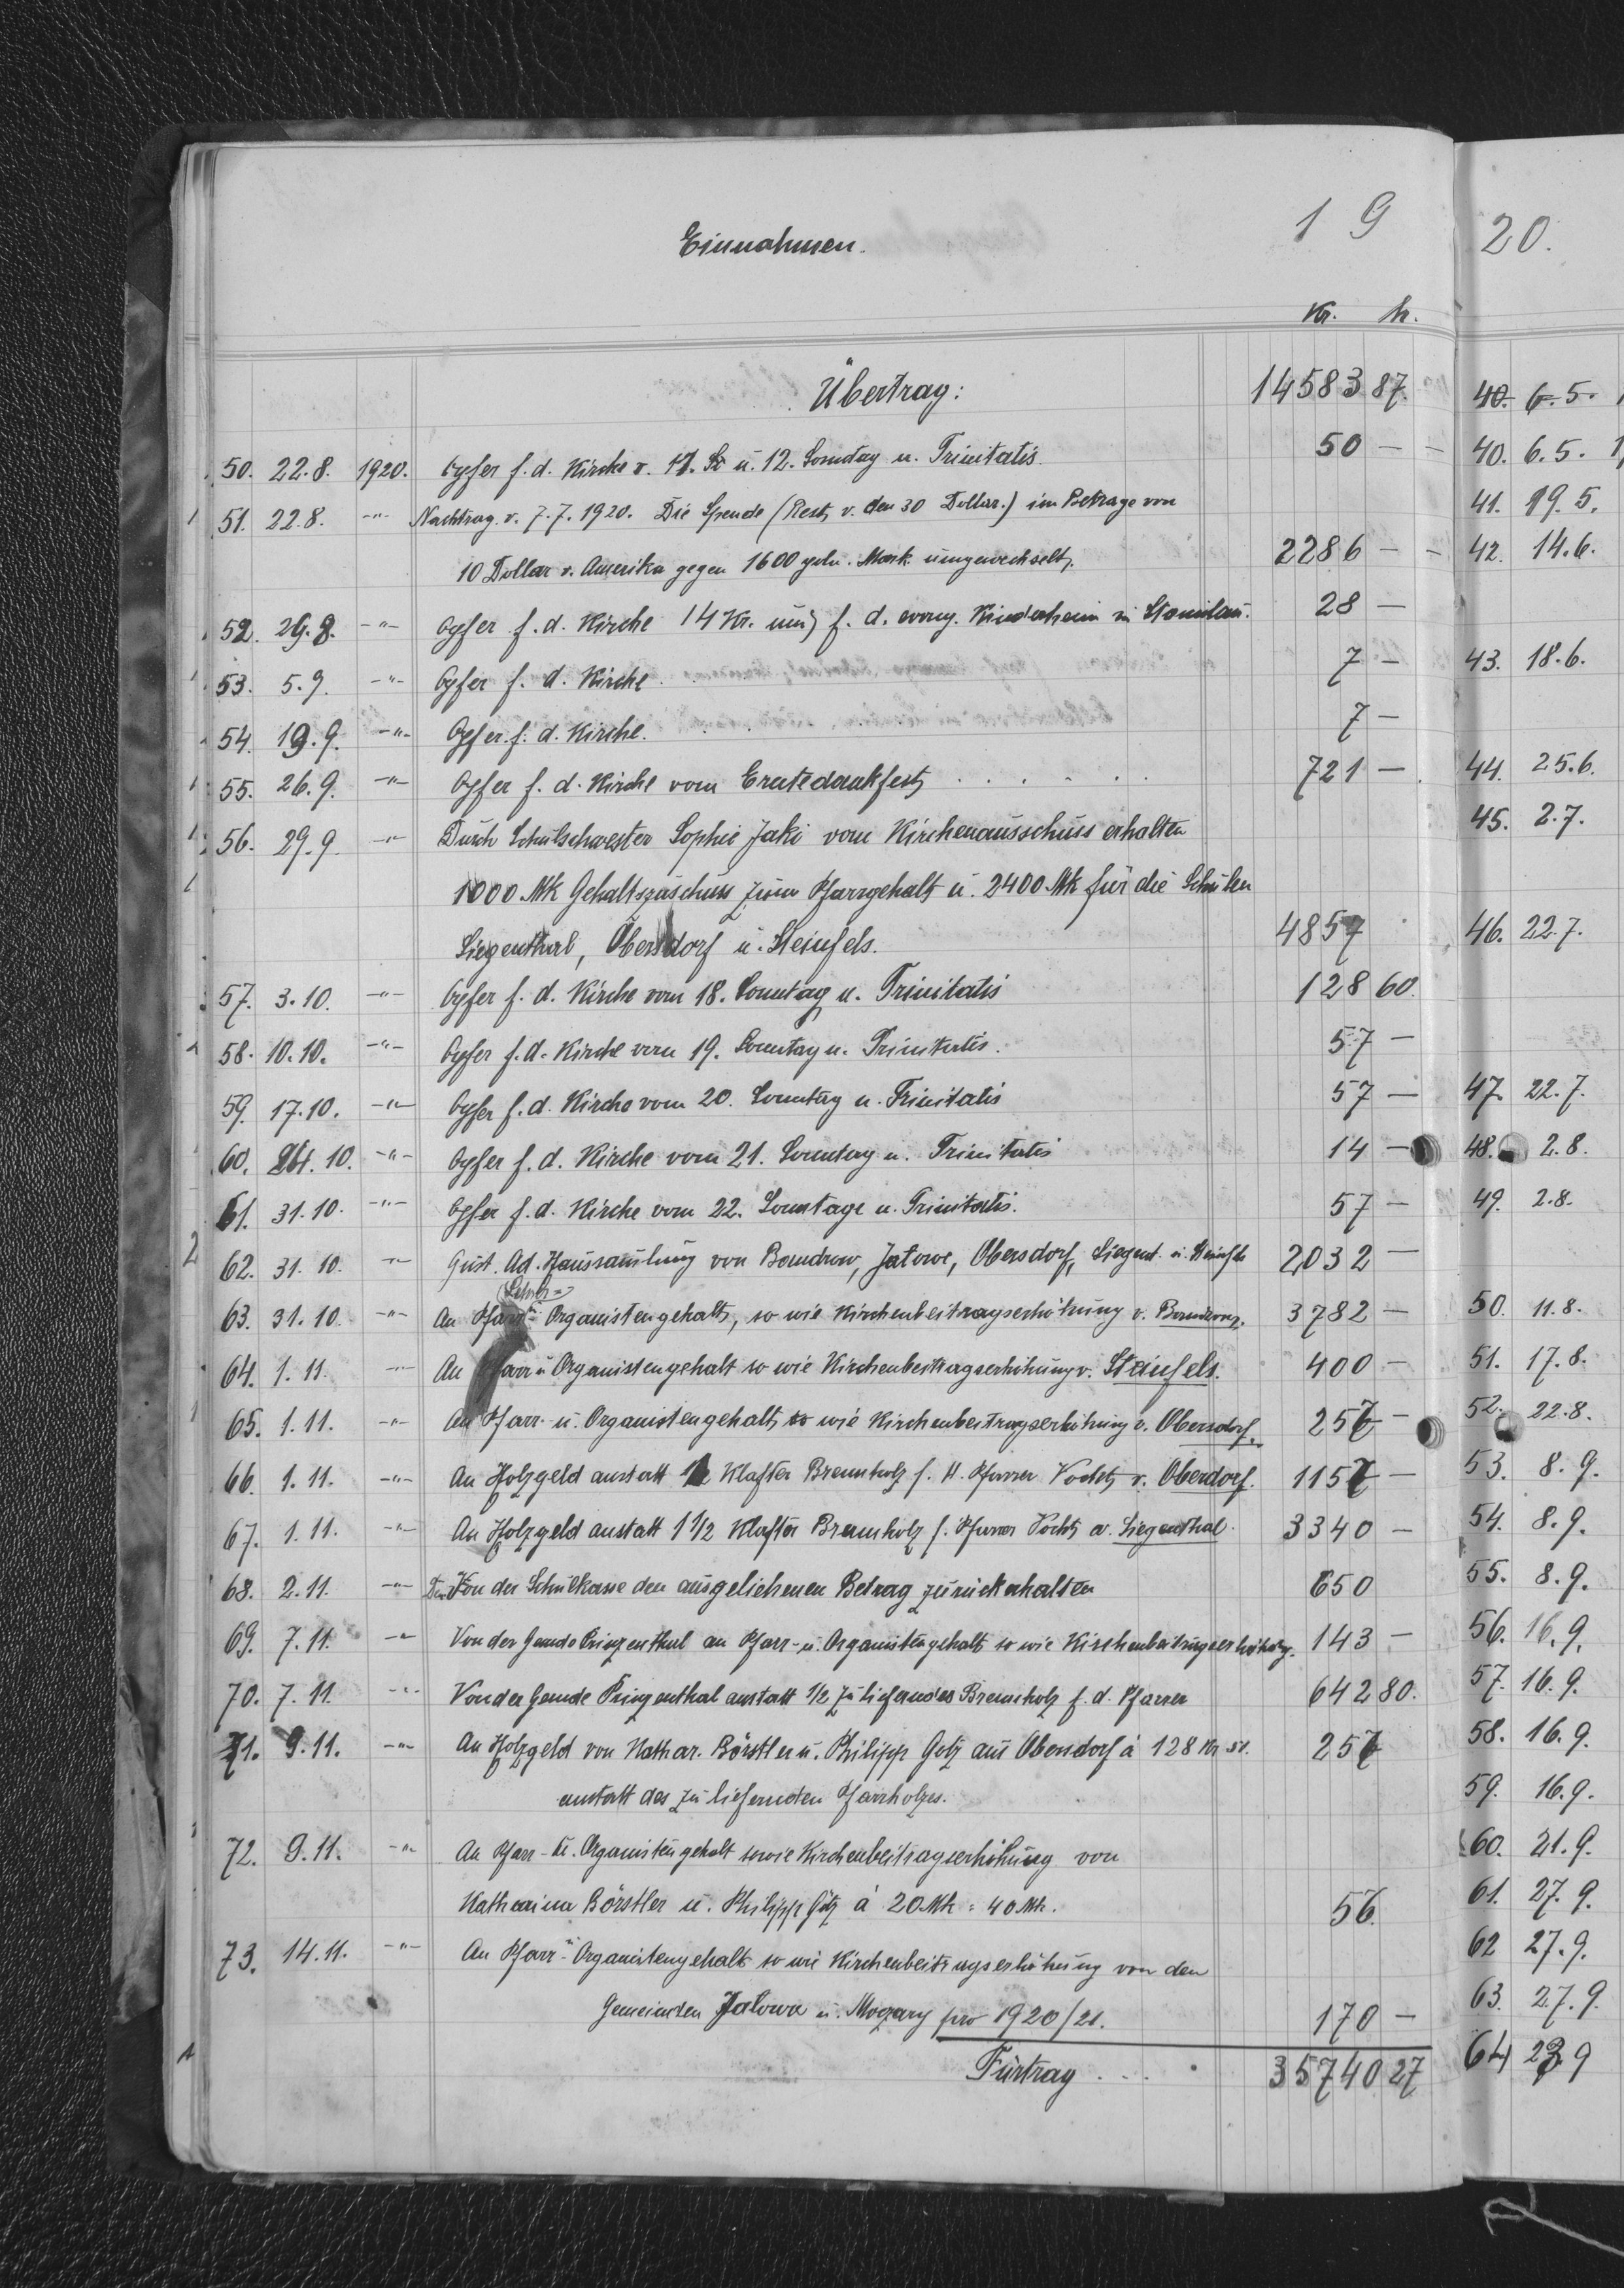 Einnahmen.
19
20.
Kr. h.
Übertrag: 14583 87.
50. 22.8. 1920. Opfer f. d. Kirche v. 11. So u. 12. Sonntag n. Trinitatis. 50 —
51. 22.8. -"- Nachtrag v. 7.7.1920. Die Spende (Rest v. den 30 Dollar.) im Betrage von
10 Dollar v. Amerika gegen 1600 poln. Mark umgewechselt. 2286 —
52. 29.8. -"- Opfer f. d. Kirche 14 Kr. und f. d. evang. Kinderheim in Stanislau. 28 —
53. 5.9. -"- Opfer f. d. Kirche . 7 —
54. 19.9. -"- Opfer f. d. Kirche. 7 —
55. 26.9. -"- Opfer f. d. Kirche vom Erntedankfest . . . . . . 721 —
56. 29.9 -"- Durch Schulschwester Sophie Jaki vom Kirchenausschuss erhalten
1000 Mk Gehaltszuschuss zum Pfarrgehalt u. 2400 Mk für die Schulen
Siegenthal, Obersdorf u. Steinfels. 4857
57. 3.10. -"- Opfer f. d. Kirche vom 18. Sonntag n. Trinitatis 128 60.
58. 10.10. -"- Opfer f. d. Kirche vom 19. Sonntag n. Trinitatis. 57 —
59. 17.10. -"- Opfer f. d. Kirche vom 20. Sonntag n. Trinitatis 57 —
60. 24.10. -"- Opfer f. d. Kirche vom 21. Sonntag n. Trinitatis 14 —
61. 31.10. -"- Opfer f. d. Kirche vom 22. Sonntage n. Trinitatis. 57 —
62. 31.10. -"- Gust. Ad. Haussamlung von Bandrow, Jalowe, Obersdorf, Siegent. u. Steinfels 2032 —
Lehrer=
63. 31.10. -"- An Pfarr- u. Organistengehalt, so wie Kirchenbeitragserhöhung v. Bandrow. 3782 —
64. 1.11. -"- An Pfarr u Organistengehalt so wie Kirchenbeitragserhöhung v. Steinfels. 400 —
65. 1.11. -"- An Pfarr- u. Organistengehalt so wie Kirchenbeitragserhöhung v. Obersdorf. 257 —
66. 1.11. -"- An Holzgeld anstatt 1/2 Klafter Brennholz f. H. Pfarrer Vocht v. Oberdorf. 1157 —
67. 1.11. -"- An Holzgeld anstatt 1 1/2 Klafter Brennholz f. Pfarrer Vocht v. Siegenthal. 3340 —
68. 2.11. -"- Von der Schulkasse den ausgeliehenen Betrag zurückerhalten 650
69. 7.11. -"- Von der Gemde Prinzenthal an Pfarr- u. Organistengehalt so wie Kirchenbeitragserhöhung. 143 —
70. 7.11. -"- Von der Gemde Prinzenthal anstatt 1/2 zu lieferndes Brennholz f. d. Pfarrer 642 80.
71. 9.11. -"- An Holzgeld von Kathar. Börstler u. Philipp Götz aus Obersdorf à 128 Kr 50. 257
anstatt des zu liefernden Pfarrholzes.
72. 9.11. -"- An Pfarr- u. Organistengehalt sowie Kirchenbeitragserhöhung von
Katharina Börstler u. Philipp Götz à 20 Mk = 40 Mk. 56
73. 14.11. -"- An Pfarr- u. Organistengehalt so wie Kirchenbeitragserhöhung von den
Gemeinden Jalowa u. Moczary pro 1920/21. 170 —
Fürtrag . . . . 35740 27
40. 6.5.
40. 6.5.
41. 19.5.
42. 14.6.
43. 18.6.
44. 25.6.
45. 2.7.
46. 22.7.
47. 22.7.
48. 2.8.
49. 2.8.
50. 11.8.
51. 17.8.
52. 22.8.
53. 8.9.
54. 8.9.
55. 8.9.
56. 16.9.
57. 16.9.
58. 16.9.
59. 16.9.
60. 21.9.
61. 27.9.
62 27.9.
63. 27.9.
64 27.9